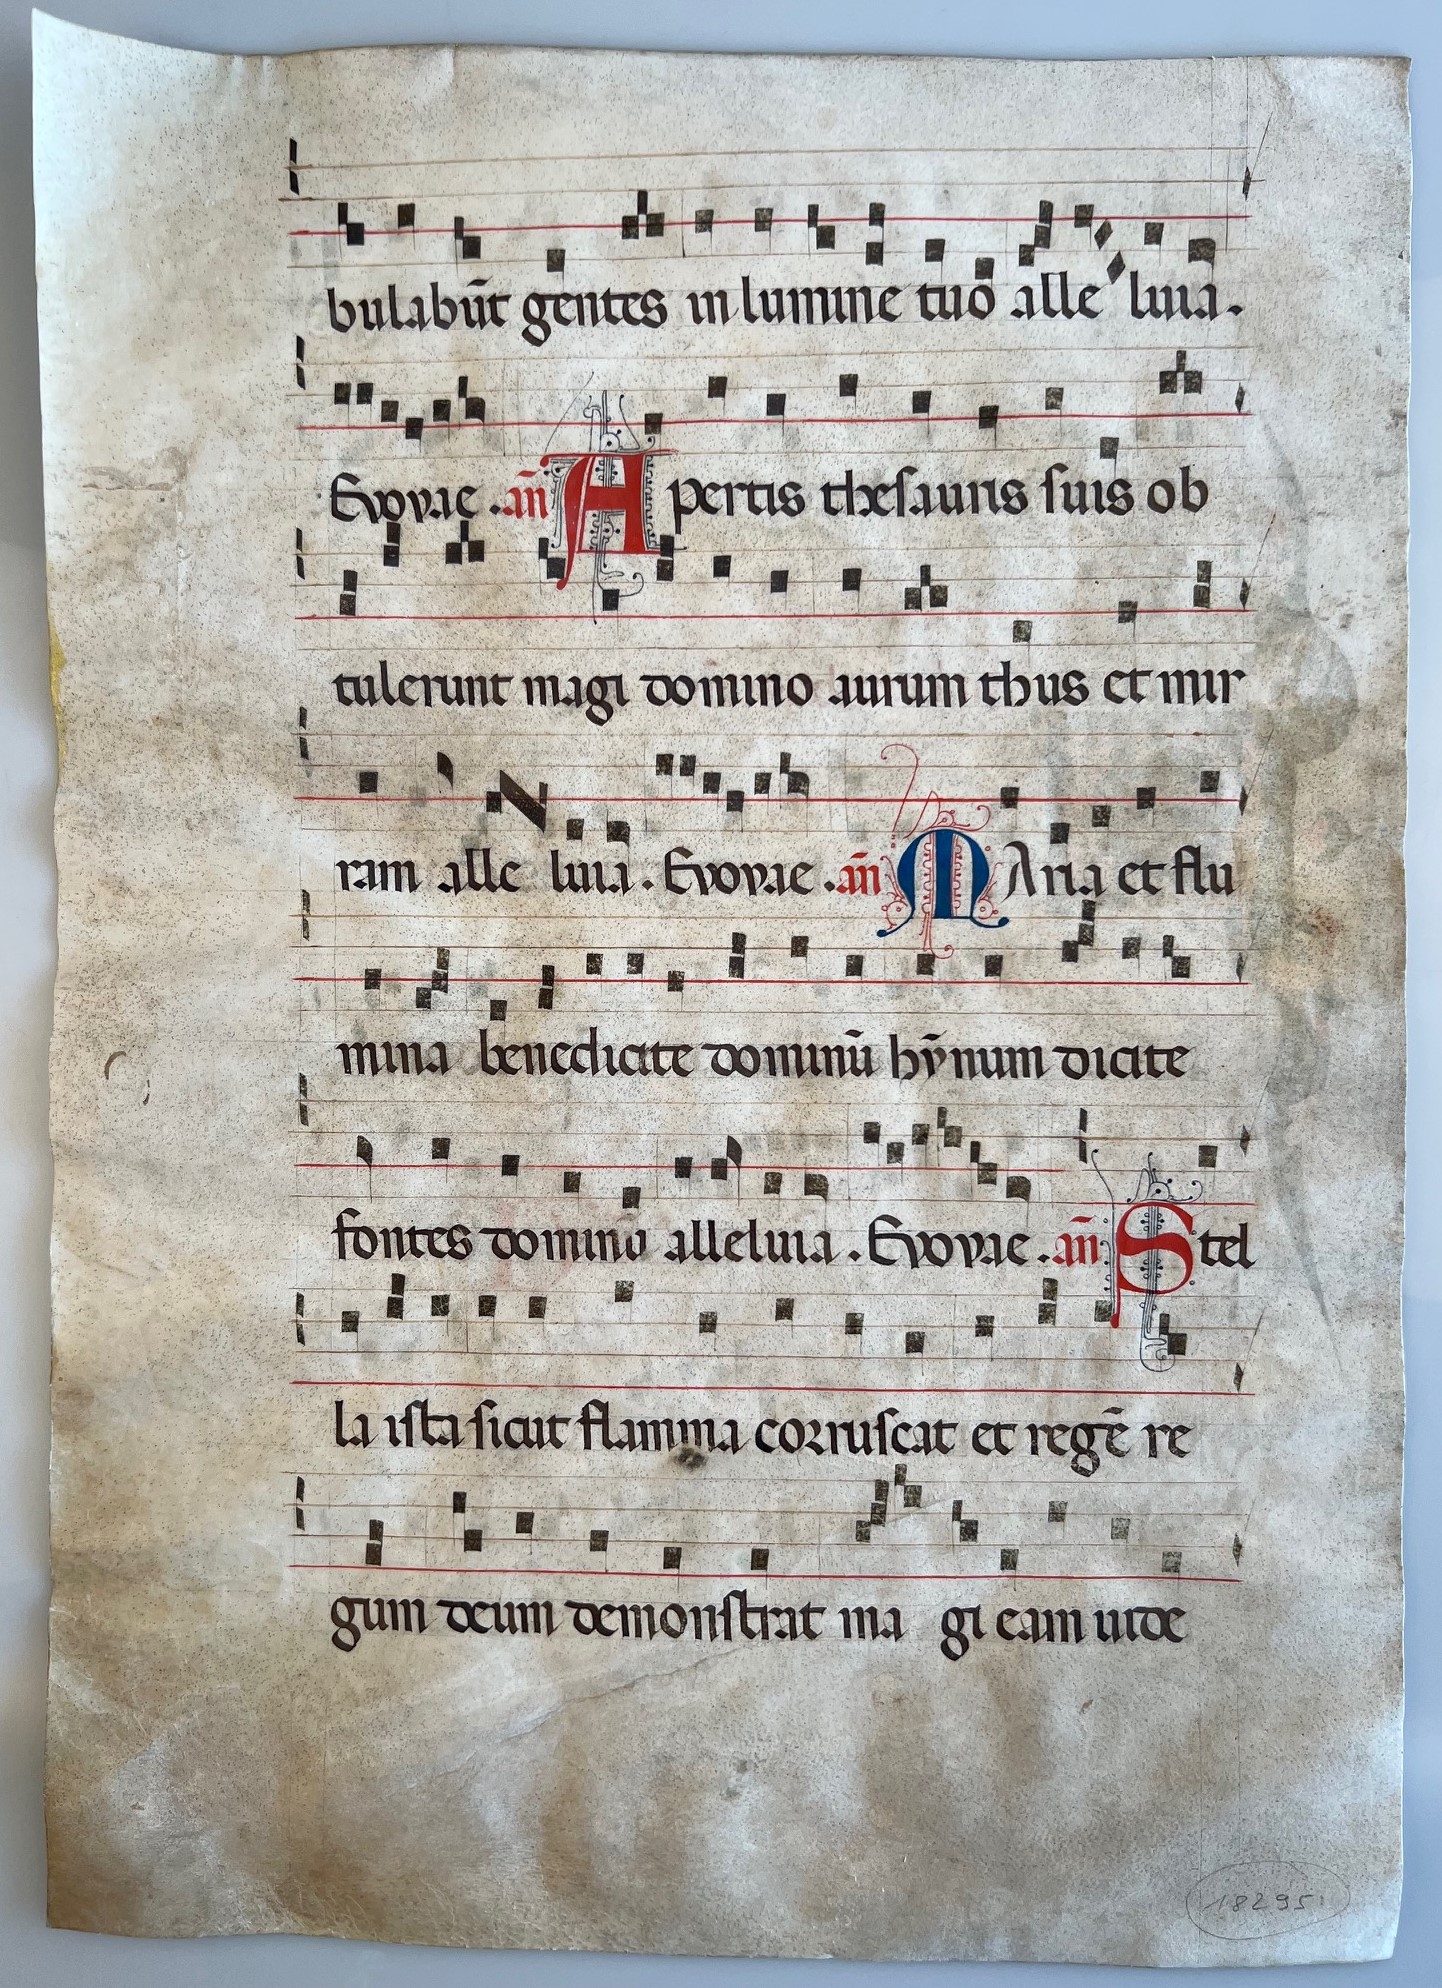 bulabūt gentes in lumine tuo alle luia.
Evovae .an̄ Apertis thesauris suis ob
tulerunt magi domino aurum thus et mir
ram alle luia. Evovae .an̄ MAria et flu
mina benedicite dominū hȳnum dicite
fontes domino alleluia. Evovae .an̄ Stel
la ista sicut flamma corruscat et regē re
gum deum demonstrat ma gi eam uide
18295